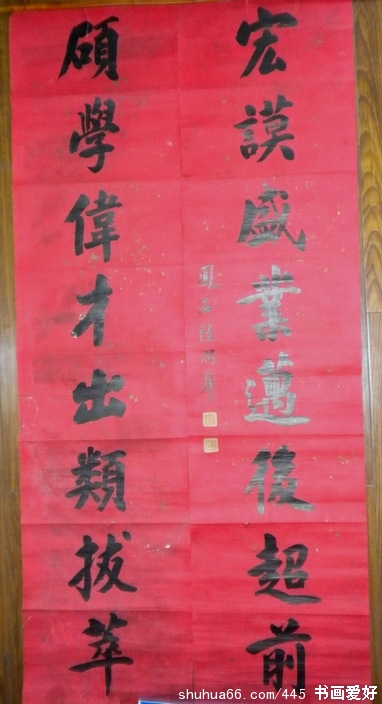 宏謨盛業邁後超前
碩學偉才出類拔萃
鳳石陸潤庠
shuhua66.com/445 书画爱好